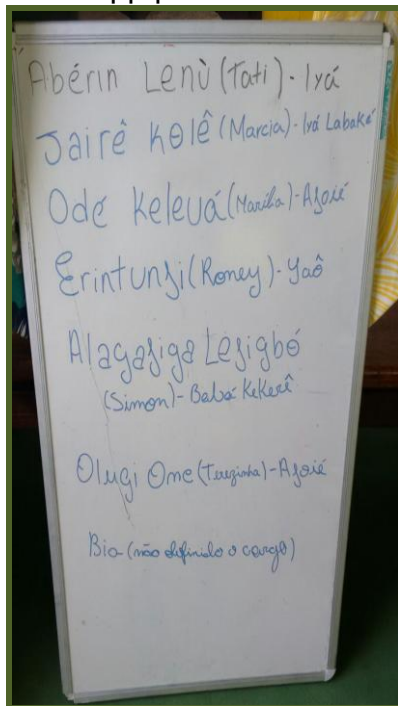 Abérin Lenù (Tati) - Iyá
Jairê Kolê (Marcia) - Iyá Labaké
Odé Keleuá (Marila) - Ajoié
Erintunji (Roney) - Yaô
Alagajiga Lejigbó
(Simon) - Babá Kekerê
Olugi Ome (Terezinha) - Ajoié
Bia - (não definido o cargo)